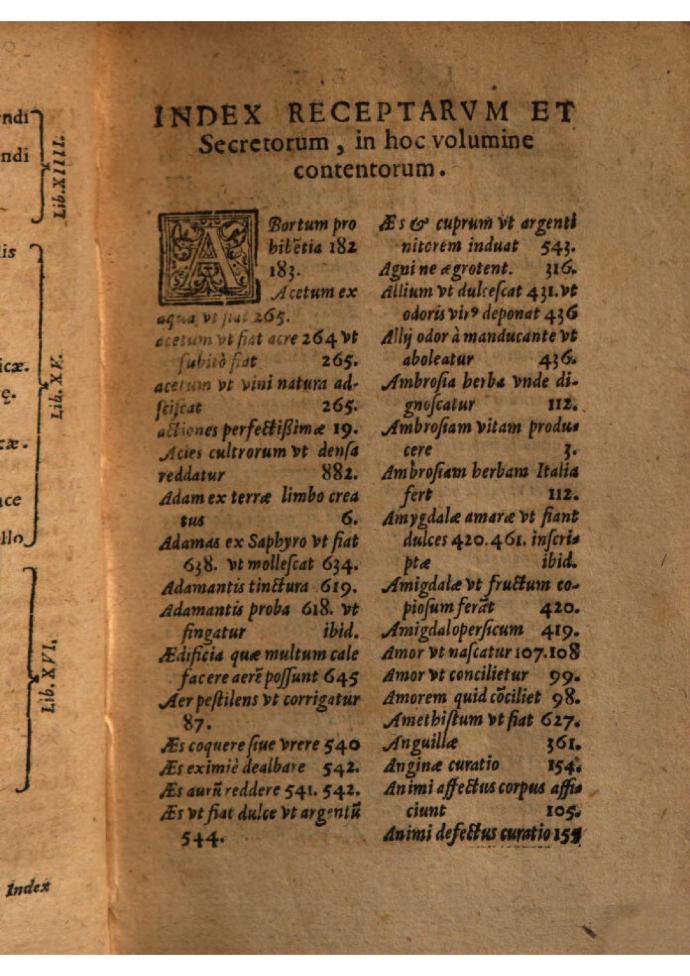 ndi
ndi
Lib. XIIII.
lis
icæ.
ę.
cæ.
ace
llo
Lib. XV.
Lib. XVI.
Index
INDEX RECEPTARVM ET
Secretorum, in hoc volumine
contentorum.
ABortum pro
hibētia 182
183.
Acetum ex
aqua vt fiat 265.
acetum vt fiat acre 264 vt
ſubitò fiat 265.
acetum vt vini natura ad-
ſciſcat 265.
actiones perfectißimæ 19.
Acies cultrorum vt denſa
reddatur 882.
Adam ex terræ limbo crea
tus 6.
Adamas ex Saphyro vt fiat
638. vt molleſcat 634.
Adamantis tinctura 619.
Adamantis proba 618. vt
fingatur ibid.
Ædificia quæ multum cale
facere aerē poſſunt 645
Aer peſtilens vt corrigatur
87.
Æs coquere ſiue vrere 540
Æs eximiè dealbare 542.
Æs aurū reddere 541. 542.
Æs vt fiat dulce vt argentū
544.
Æs & cuprum vt argenti
nitorem induat 543.
Agni ne ægrotent. 316.
Allium vt dulceſcat 431. vt
odoris virꝰ deponat 436
Allij odor à manducante vt
aboleatur 436.
Ambroſia herba vnde di-
gnoſcatur 112.
Ambroſiam vitam produ-
cere 3.
Ambroſiam herbam Italia
fert 112.
Amygdalæ amaræ vt fiant
dulces 420. 461. inſcri-
ptæ ibid.
Amigdalæ vt fructum co-
pioſum ferāt 420.
Amigdaloperſicum 419.
Amor vt naſcatur 107.108
Amor vt concilietur 99.
Amorem quid cōciliet 98.
Amethiſtum vt fiat 627.
Anguillæ 361.
Anginæ curatio 154.
Animi affectus corpus affi-
ciunt 105.
Animi defectus curatio